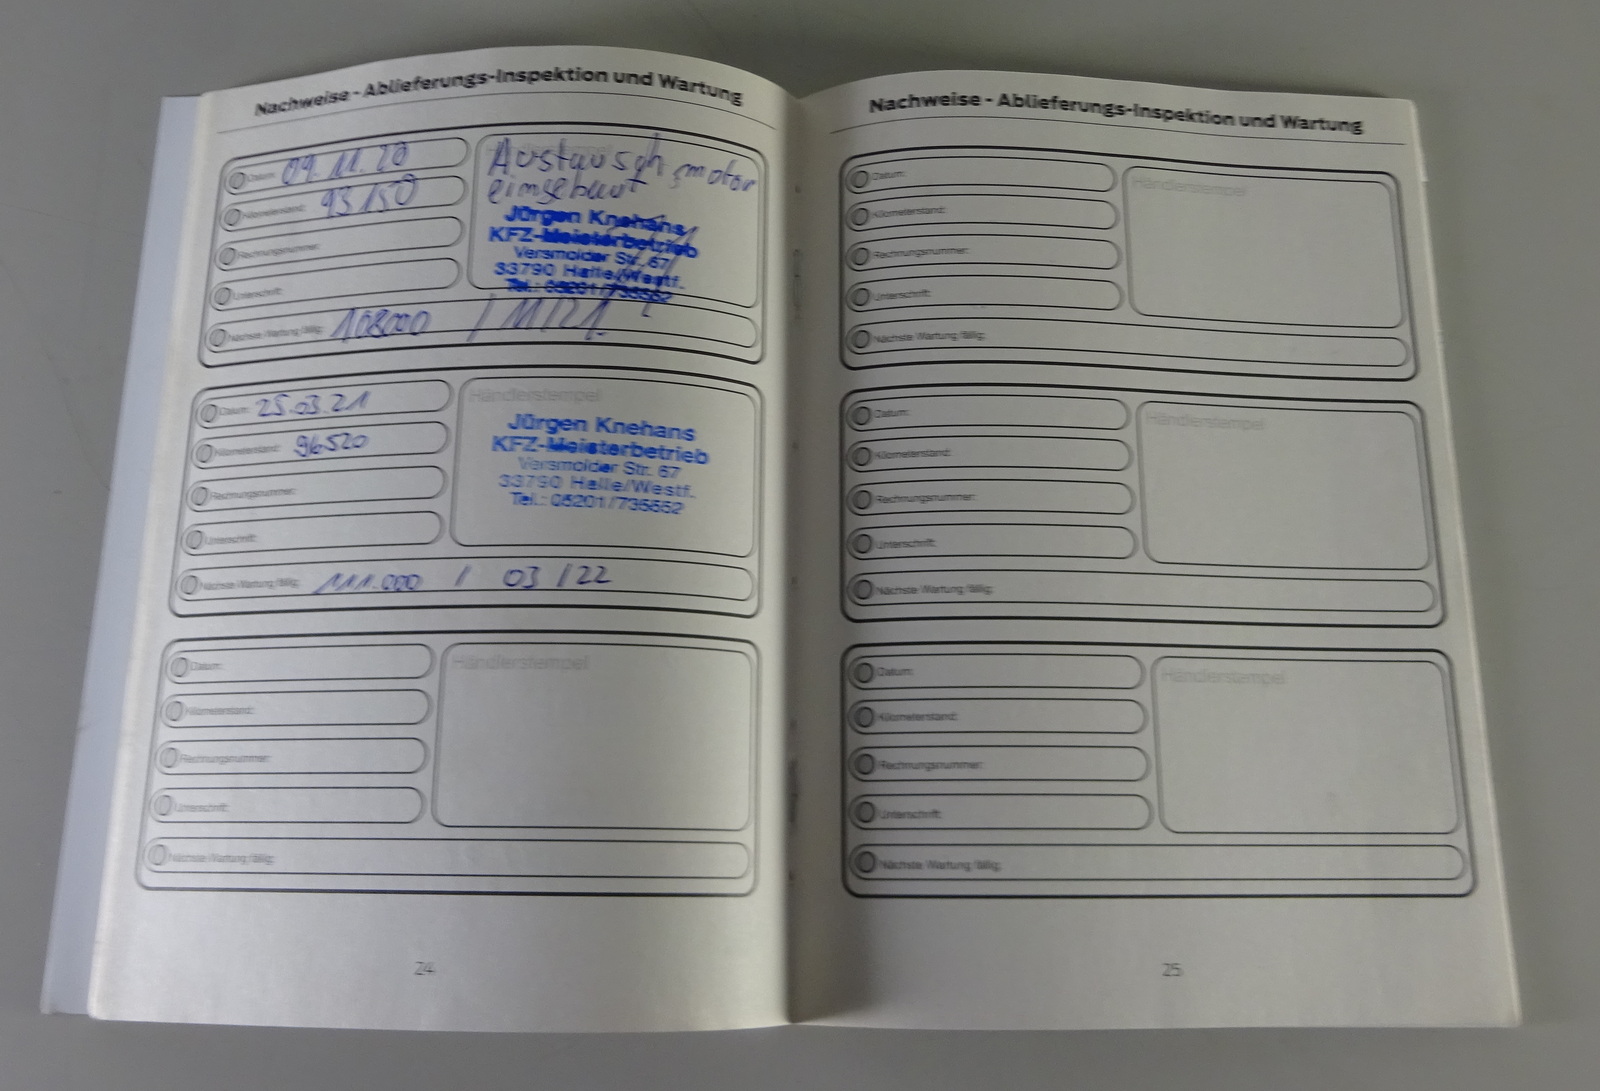 Nachweise - Ablieferungs-Inspektion und Wartung
Datum: 09.11.20
Kilometerstand: 93150
Rechnungsnummer:
Unterschrift:
Austauschmotor
eingebaut
Jürgen Knehans
KFZ-Meisterbetrieb
Versmolder Str. 67
33790 Halle/Westf.
Tel.: 05201/735552
Nächste Wartung fällig: 108000 / 11/21
Datum: 25.03.21
Kilometerstand: 96520
Rechnungsnummer:
Unterschrift:
Händlerstempel
Jürgen Knehans
KFZ-Meisterbetrieb
Versmolder Str. 67
33790 Halle/Westf.
Tel.: 05201/735552
Nächste Wartung fällig: 111.000 / 03/22
Datum:
Kilometerstand:
Rechnungsnummer:
Unterschrift:
Händlerstempel
Nächste Wartung fällig:
24
Nachweise - Ablieferungs-Inspektion und Wartung
Datum:
Kilometerstand:
Rechnungsnummer:
Unterschrift:
Händlerstempel
Nächste Wartung fällig:
Datum:
Kilometerstand:
Rechnungsnummer:
Unterschrift:
Händlerstempel
Nächste Wartung fällig:
Datum:
Kilometerstand:
Rechnungsnummer:
Unterschrift:
Händlerstempel
Nächste Wartung fällig:
25